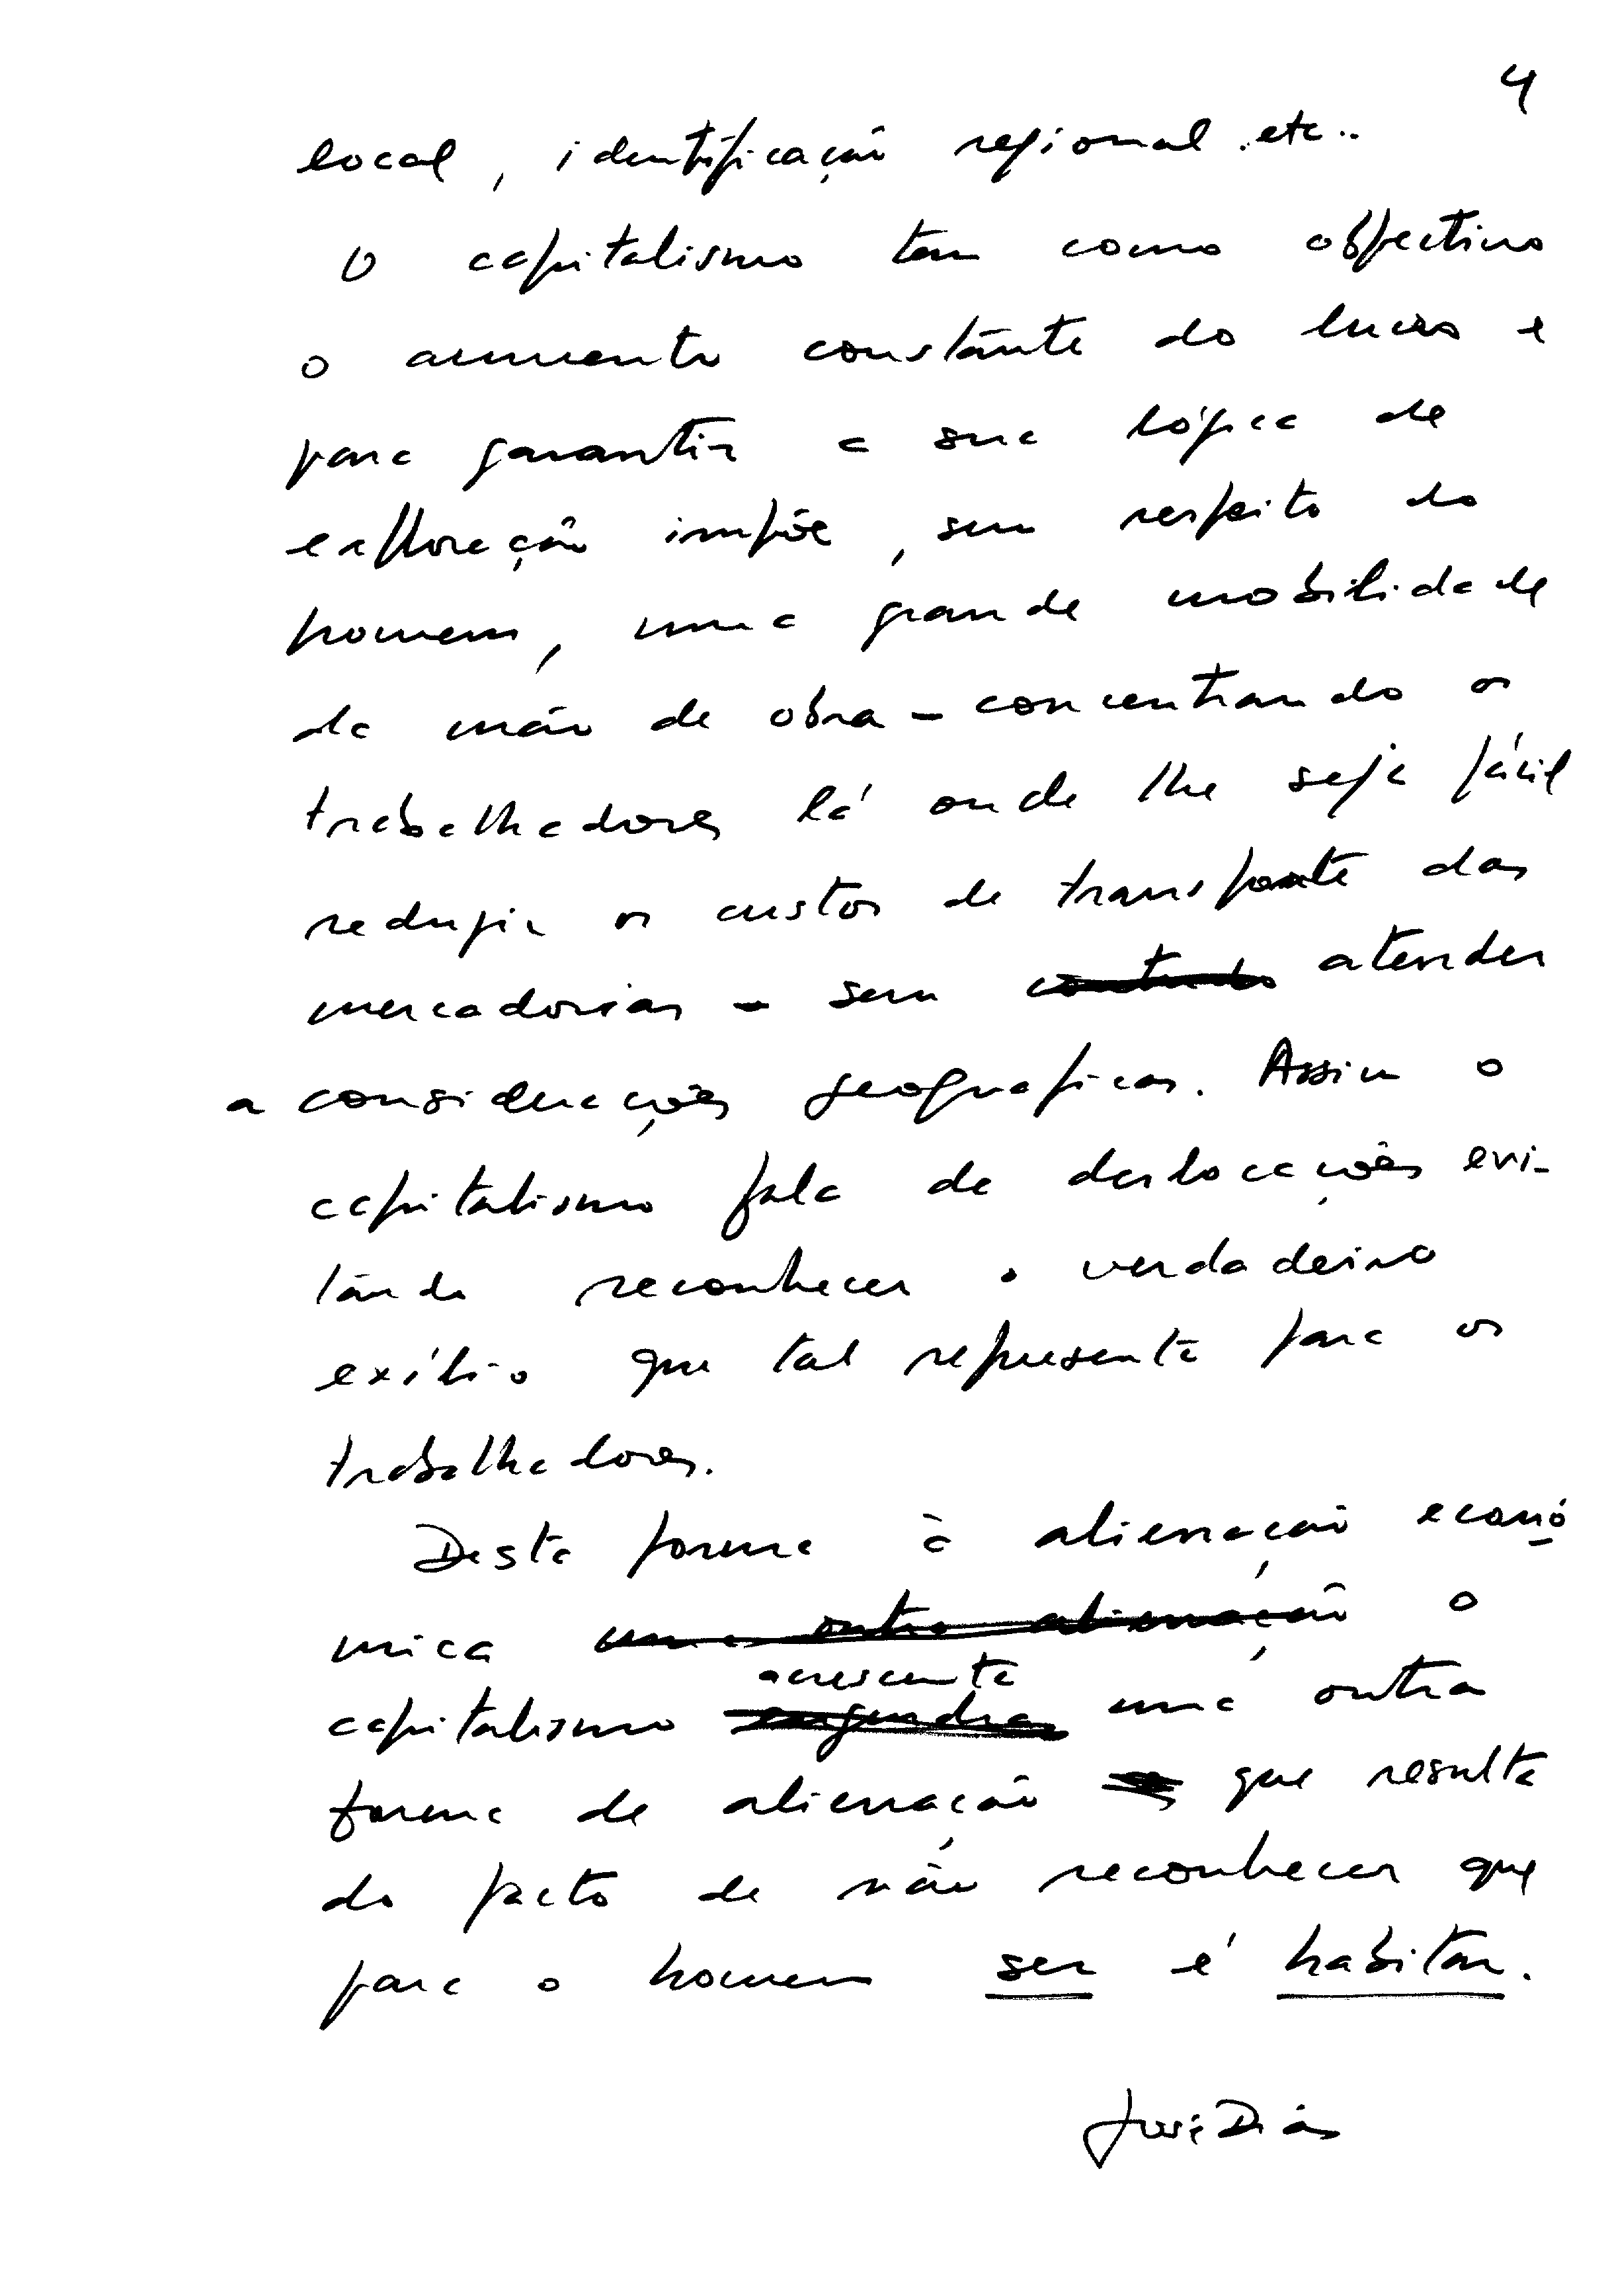 4
local, identificação regional etc..
O capitalismo tem como objectivo
o aumento constante do lucro e
para garantir a sua lógica de
exploração impõe, sem respeito do
homem, uma grande mobilidade
da mão de obra - concentrando os
trabalhadores lá onde lhe seja fácil
reduzir os custos de transporte das
mercadorias - sem contudo atender
a considerações geograficas. Assim o
capitalismo fala de deslocações evi-
tando reconhecer o verdadeiro
exílio que tal representa para os
trabalhadores.
Desta forma à alienação econó
mica uma outra alienação o
acrescenta
capitalismo engendra uma outra
forma de alienação que resulta
do facto de não reconhecer que
para o homem ser é habitar.
José Dias